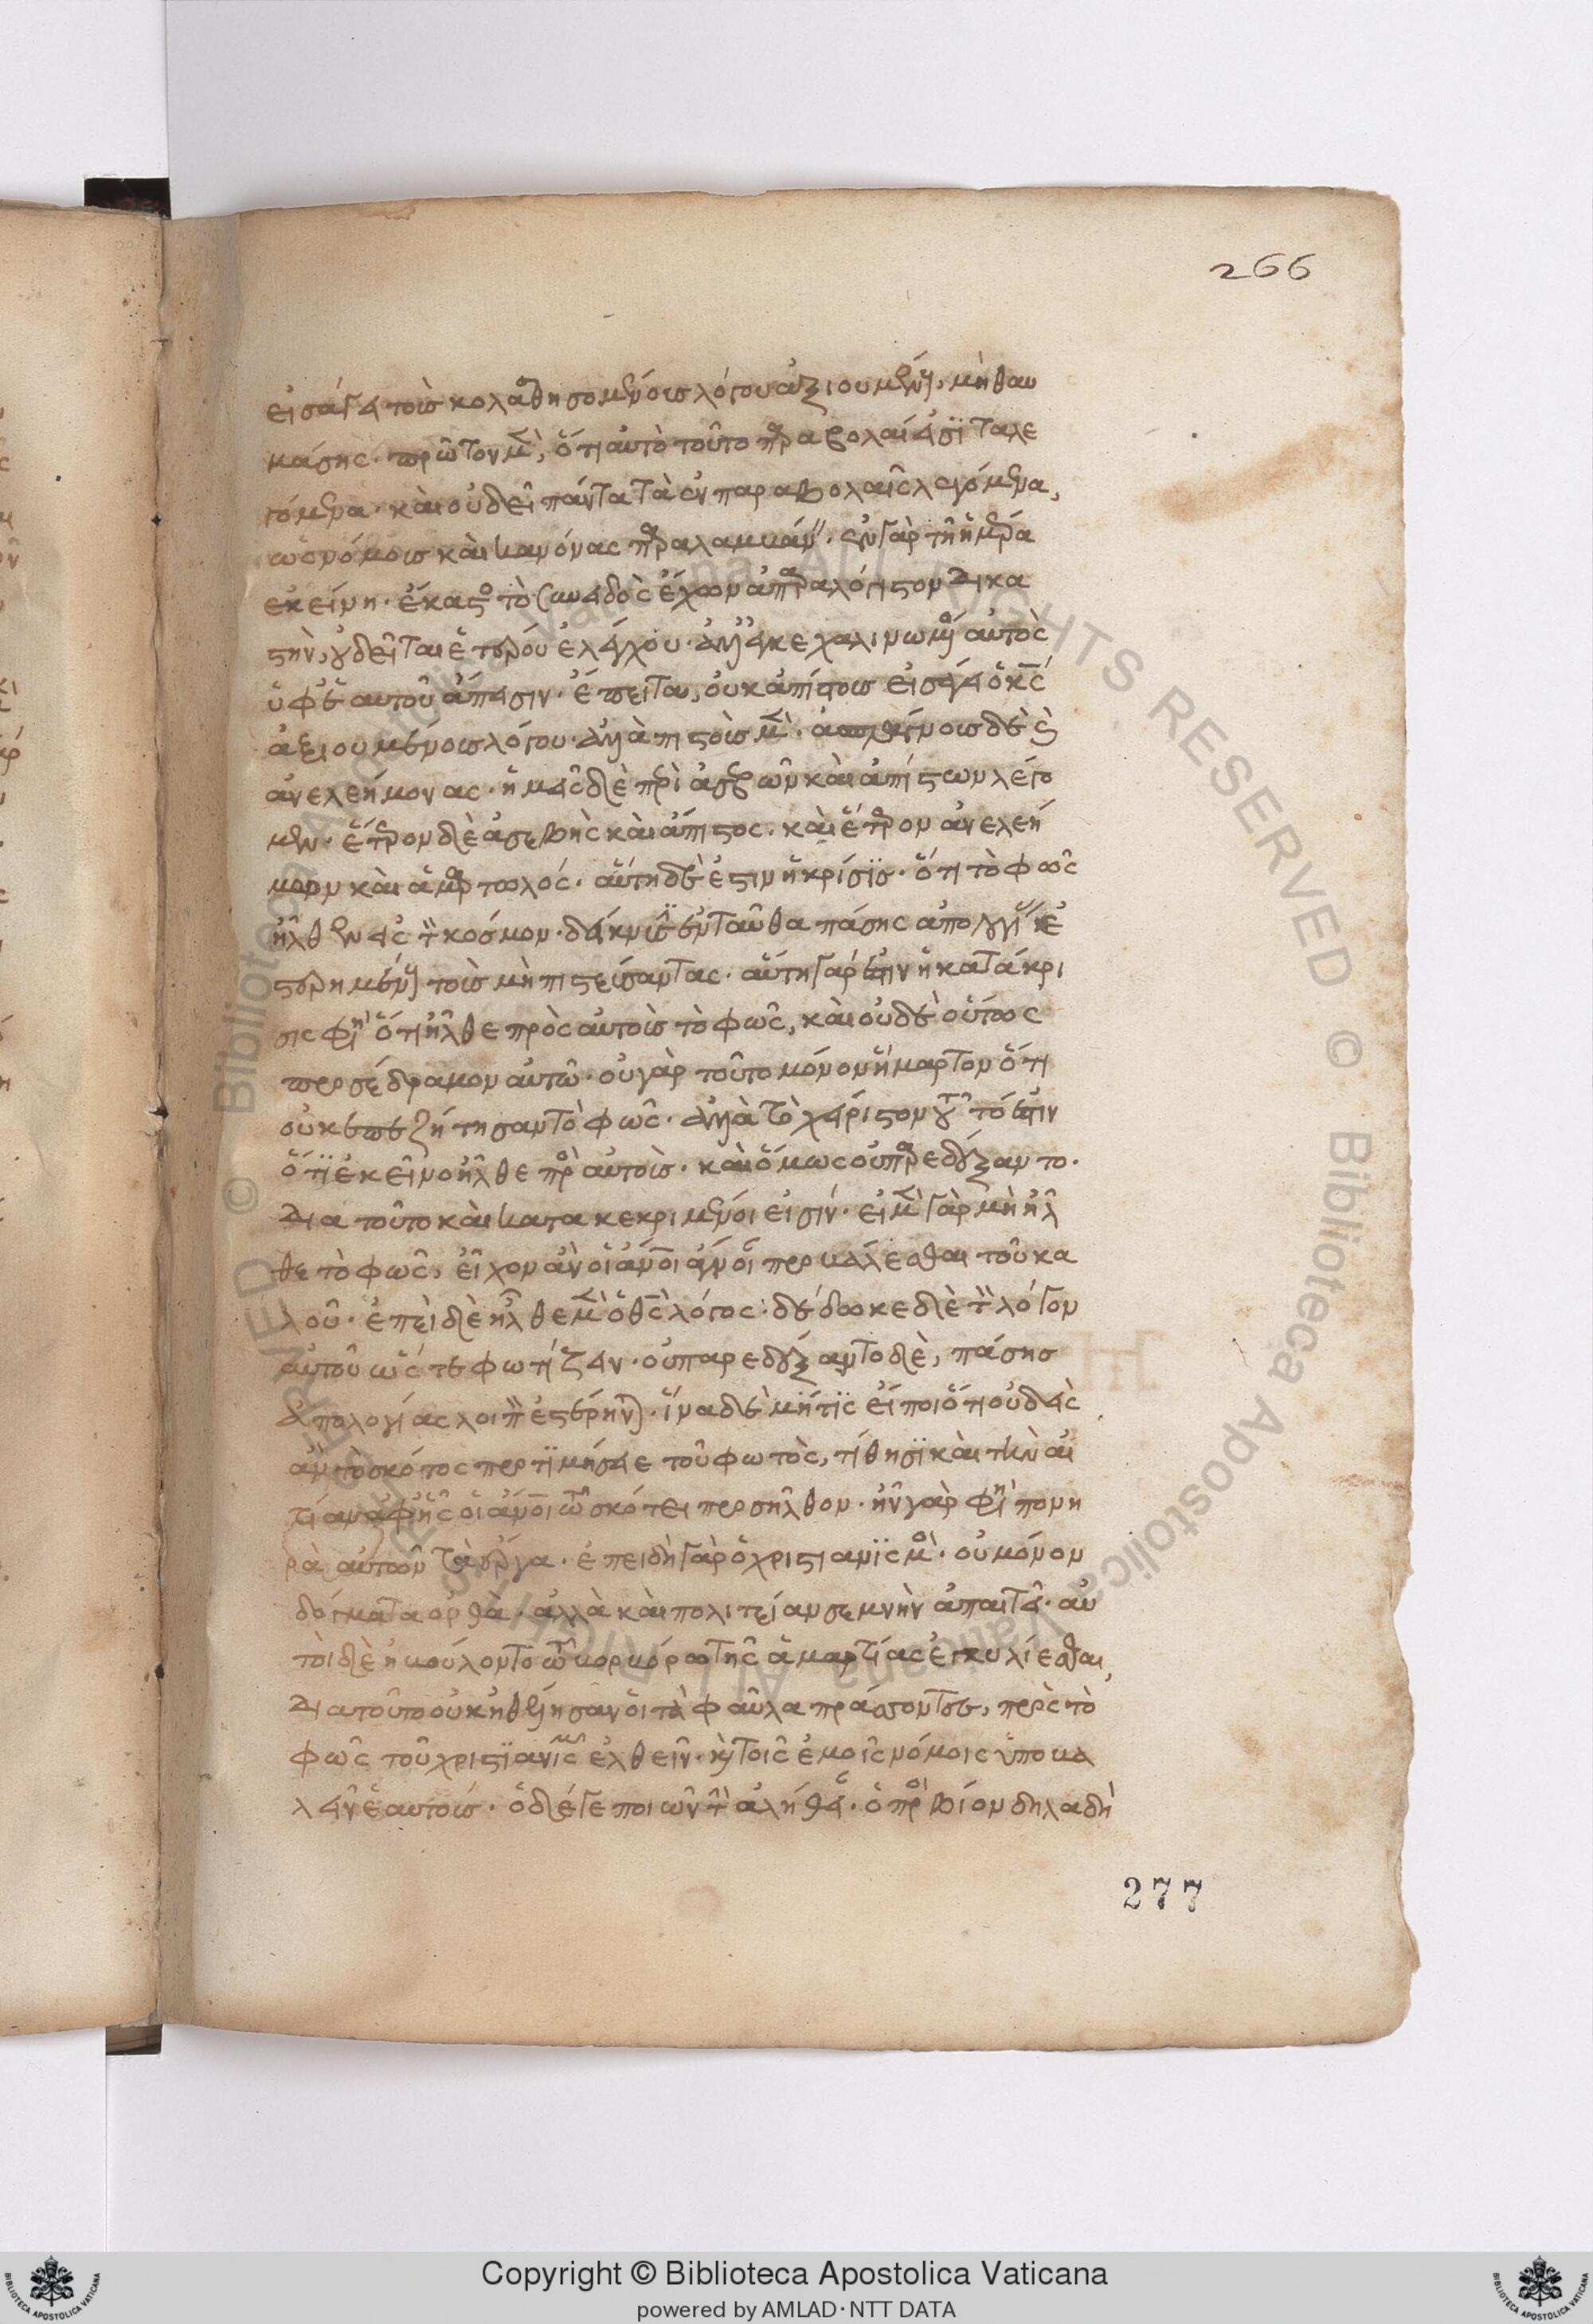 266
εἰσάγει τοὺς κολασθησομένους λόγου ἀξιουμένους, μὴ θαυ
μάσῃς. πρῶτον μὲν, ὅτι αὐτὸ τοῦτο παραβολαί εἰσι τὰ λε
γόμενα. καὶ οὐ δεῖ πάντα τὰ ἐν παραβολαῖς λεγόμενα,
ὡς νόμους καὶ κανόνας παραλαμβάνειν. ἐν γὰρ τῇ ἡμέρα
ἐκείνη. ἕκαστος τὸ συνειδὸς ἔχων ἀπαραλόγιστον δικα
στὴν, οὐ δεῖται ἑτέρου ἐλέγχου. ἀλλ' εἰ κεχαλινωμένος αὐτὸς
ὑφ' ἑαυτοῦ ἄπεισιν. ἔπειτα, οὐκ ἀπίστους εἰσάγει ὁ κς
ἀξιουμένους λόγου. ἀλλὰ πιστοὺς μὲν. ἀσυμ δὲ καὶ
ἀνελεήμονας. ἡμεῖς δὲ περὶ ἀσεβῶν καὶ ἀπίστων λέγο
μεν. ἕτερον δὲ ἀσεβὴς καὶ ἄπιστος. καὶ ἕτερον ἀνελεή
μων καὶ ἁμαρτωλός. αὕτη δὲ ἐστιν ἡ κρίσις. ὅτι τὸ φῶς
ἦλθεν εἰς τὸν κόσμον. δείκνυσιν ἐνταῦθα πάσης ἀπολογίας ἐ
στερημένους τοὺς μὴ πιστεύσαντας. αὕτη γάρ ἐστιν ἡ κατάκρι
σις φησὶν ὅτι ἦλθε πρὸς αὐτοὺς τὸ φῶς, καὶ οὐδὲ οὕτως
προσέδραμον αὐτῶ. οὐ γὰρ τοῦτο μόνον ἥμαρτον ὅτι
οὐκ ἐπεζήτησαν τὸ φῶς. ἀλλὰ τὸ χεῖριστον τοῦτό ἐστιν
ὅτι ἐκεῖνο ἦλθε πρὸς αὐτοὺς. καὶ ὅμως οὐ παρεδέξαντο.
διατοῦτο καὶ κατακεκριμένοι εἰσίν. εἰ μὲν γὰρ μὴ ἦλ
θε τὸ φῶς, εἶχον ἂν οἱ ἄνοι ἄγνοιαν προβαλέσθαι τοῦ κα
λοῦ. ἐπεὶ δὲ ἦλθε μὲν ὁ θς λόγος. δέδωκε δὲ τὸν λόγον
αὐτοῦ ὥστε φωτίζειν. οὐ παρεδέξαντο δὲ, πάσης
ἀπολογίας λοιπὸν ἐστέρηνται. ἵνα δὲ μή τις εἴποι ὅτι οὐδεὶς
ἂν τὸ σκότος προτιμήσειε τοῦ φωτὸς, τίθησι καὶ τὴν αἰ
τίαν ἀφ' ἧς οἱ ἄνοι τῶ σκότει προσῆλθον. ἦν γὰρ φησὶ πονη
ρὰ αὐτῶν τὰ ἔργα. ἐπειδὴ γὰρ ὁ χριστιανισμὸς. οὐ μόνον
δόγματα ὀρθὰ. ἀλλὰ καὶ πολιτείαν σεμνὴν ἀπαιτεῖ. αὐ
τοὶ δὲ ἠβούλοντο τῶ βορβόρω τῆς ἁμαρτίας ἐγκυλίεσθαι,
διατοῦτο οὐκ ἠθέλησαν οἱ τὰ φαῦλα πράσσοντες, πρὸς τὸ
φῶς τοῦ χριστιανισμοῦ ἐλθεῖν. καὶ τοῖς ἐμοῖς νόμοις ὑποβα
λεῖν ἑαυτοὺς. ὁ δέ γε ποιῶν τὴν ἀλήθειαν. ὁ πρὸς βίον δηλαδὴ
277
© Biblioteca Apostolica Vaticana ALL RIGHTS RESERVED
Copyright © Biblioteca Apostolica Vaticana
powered by AMLAD·NTT DATA